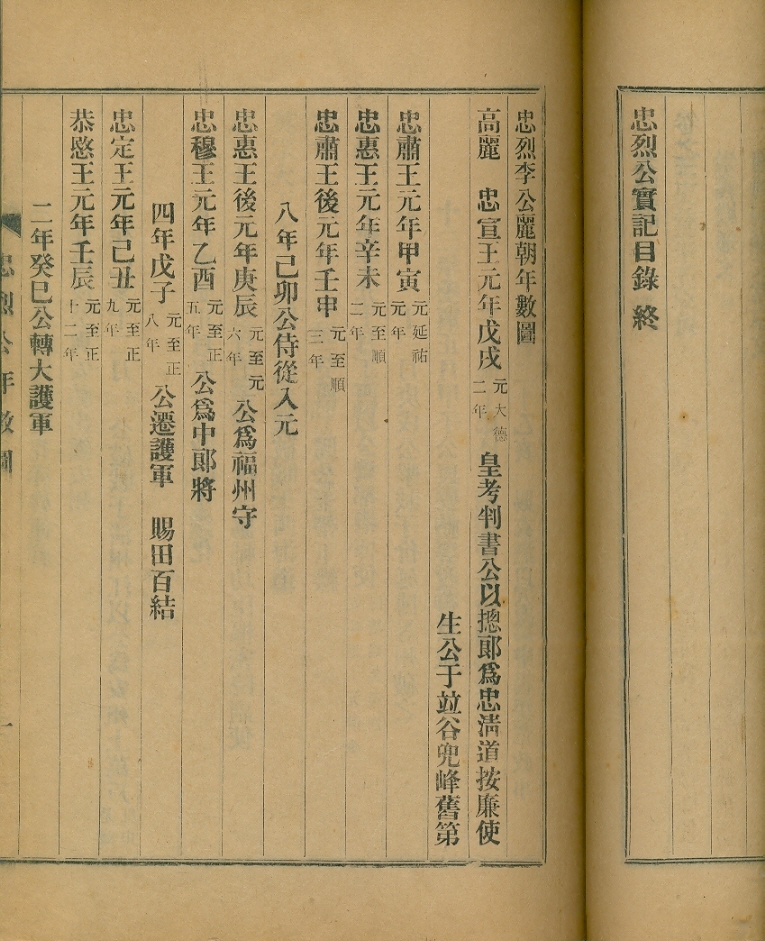 忠烈公實記目錄 終
忠烈李公麗朝年數圖
高麗 忠宣王元年戊戌 元大德二年 皇考判書公以摠郎爲忠淸道按廉使
生公于竝谷兜峰舊第
忠肅王元年甲寅 元延祐元年
忠惠王元年辛未 元至順二年
忠肅王後元年壬申 元至順三年
八年己卯公侍從入元
忠惠王後元年庚辰 元至元六年 公爲福州守
忠穆王元年乙酉 元至正五年 公爲中郎將
四年戊子 元至正八年 公遷護軍 賜田百結
忠定王元年己丑 元至正九年
恭愍王元年壬辰 元至正十二年
二年癸巳公轉大護軍
忠烈公年數圖 一